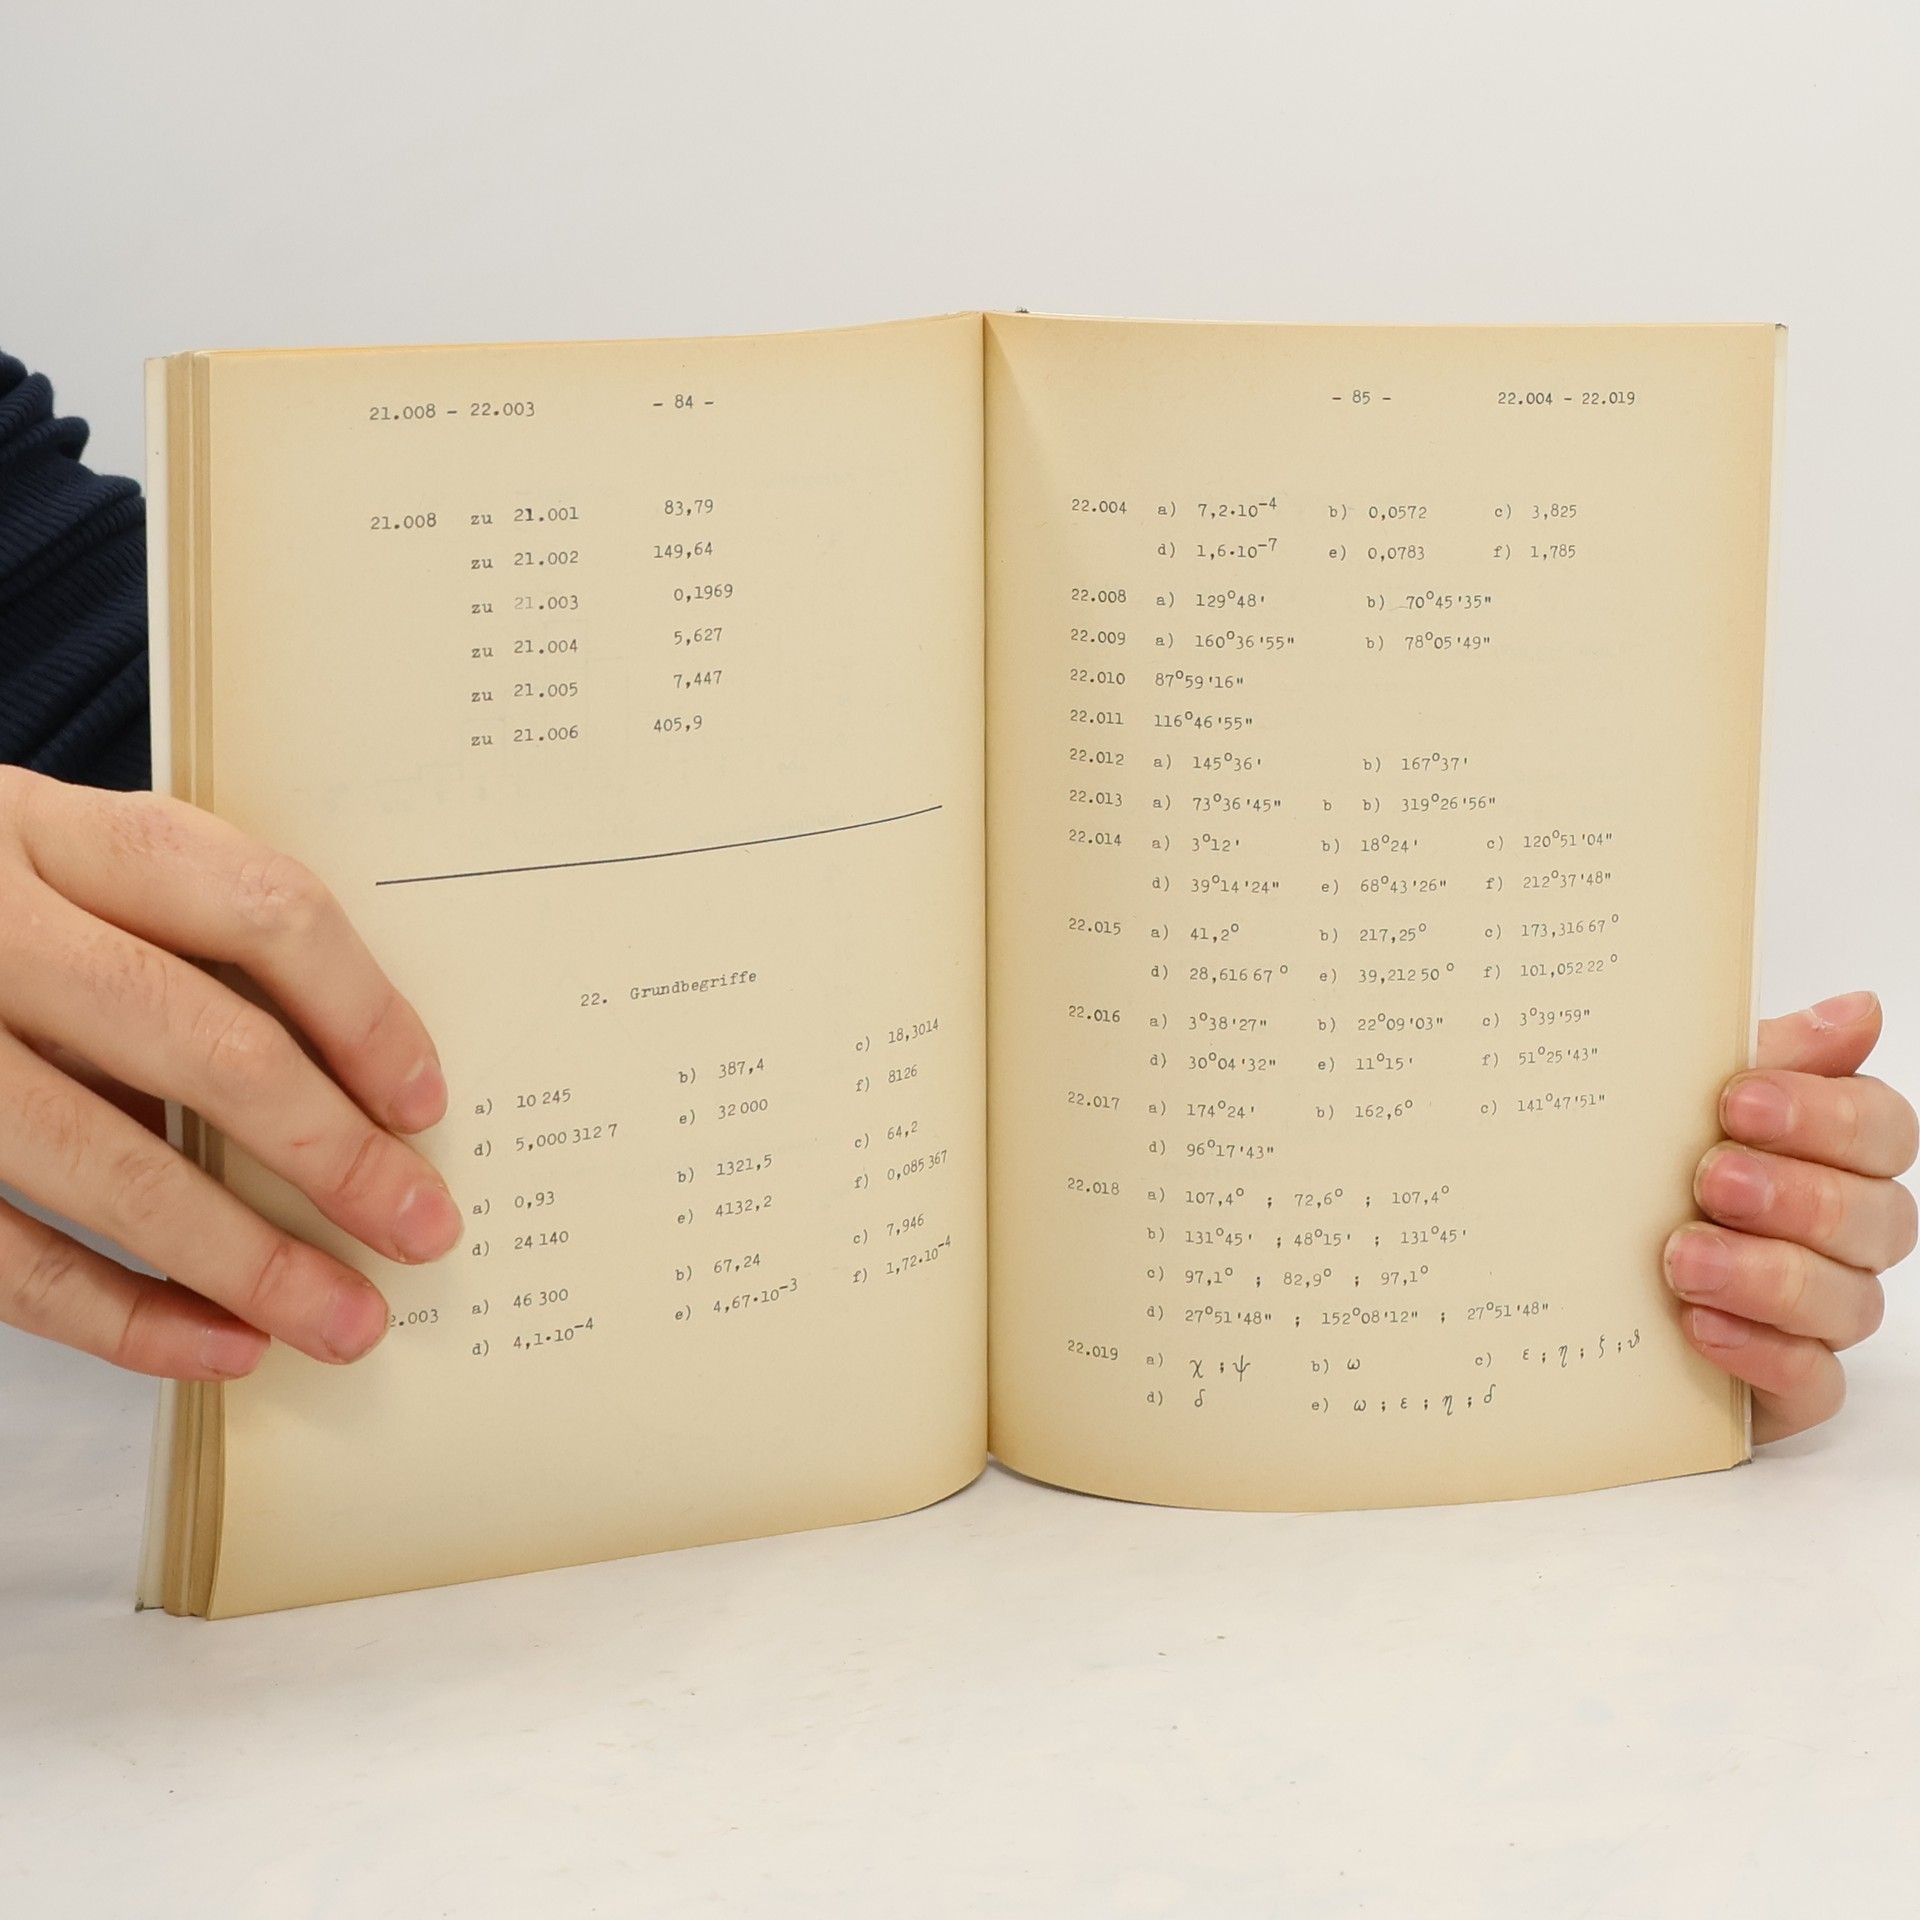 21.008 - 22.003 - 84 -
21.008 zu 21.001 83,79
zu 21.002 149,64
zu 21.003 0,1969
zu 21.004 5,627
zu 21.005 7,447
zu 21.006 405,9
22. Grundbegriffe
a) 10 245 b) 387,4 c) 18,3014
d) 5,000 312 7 e) 32 000 f) 8126
a) 0,93 b) 1321,5 c) 64,2
d) 24 140 e) 4132,2 f) 0,085 367
2.003 a) 46 300 b) 67,24 c) 7,946
d) 4,1·10⁻⁴ e) 4,67·10⁻³ f) 1,72·10⁻⁴
- 85 - 22.004 - 22.019
22.004 a) 7,2·10⁻⁴ b) 0,0572 c) 3,825
d) 1,6·10⁻⁷ e) 0,0783 f) 1,785
22.008 a) 129°48' b) 70°45'35"
22.009 a) 160°36'55" b) 78°05'49"
22.010 87°59'16"
22.011 116°46'55"
22.012 a) 145°36' b) 167°37'
22.013 a) 73°36'45" b b) 319°26'56"
22.014 a) 3°12' b) 18°24' c) 120°51'04"
d) 39°14'24" e) 68°43'26" f) 212°37'48"
22.015 a) 41,2° b) 217,25° c) 173,316 67°
d) 28,616 67° e) 39,212 50° f) 101,052 22°
22.016 a) 3°38'27" b) 22°09'03" c) 3°39'59"
d) 30°04'32" e) 11°15' f) 51°25'43"
22.017 a) 174°24' b) 162,6° c) 141°47'51"
d) 96°17'43"
22.018 a) 107,4° ; 72,6° ; 107,4°
b) 131°45' ; 48°15' ; 131°45'
c) 97,1° ; 82,9° ; 97,1°
d) 27°51'48" ; 152°08'12" ; 27°51'48"
22.019 a) χ ; ψ b) ω c) ε ; η ; ξ ; ϑ
d) δ e) ω ; ε ; η ; δ